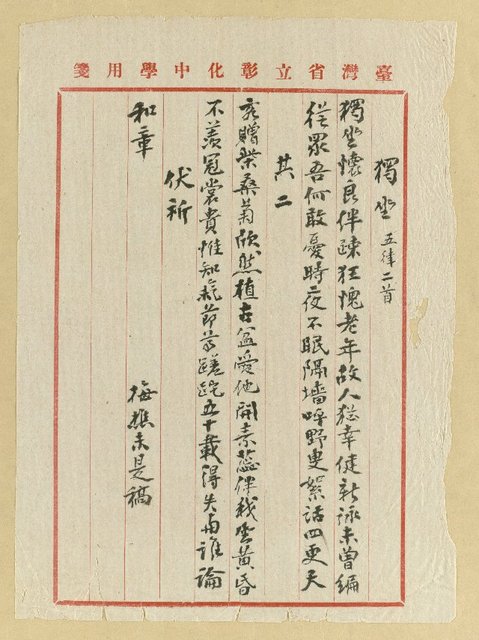 臺灣省立彰化中學用箋
獨坐 五律二首
獨坐懷良伴疎狂愧老年故人猶幸健新詠未曾編
從眾吾何敢憂時夜不眠隔墻呼野叟絮話四更天
其二
客贈柴桑菊欣然植古盆愛他開素蕊伴我坐黃昏
不羨冠裳貴惟知氣節尊蹉跎五十載得失與誰論
伏祈
和章
梅樵未是稿